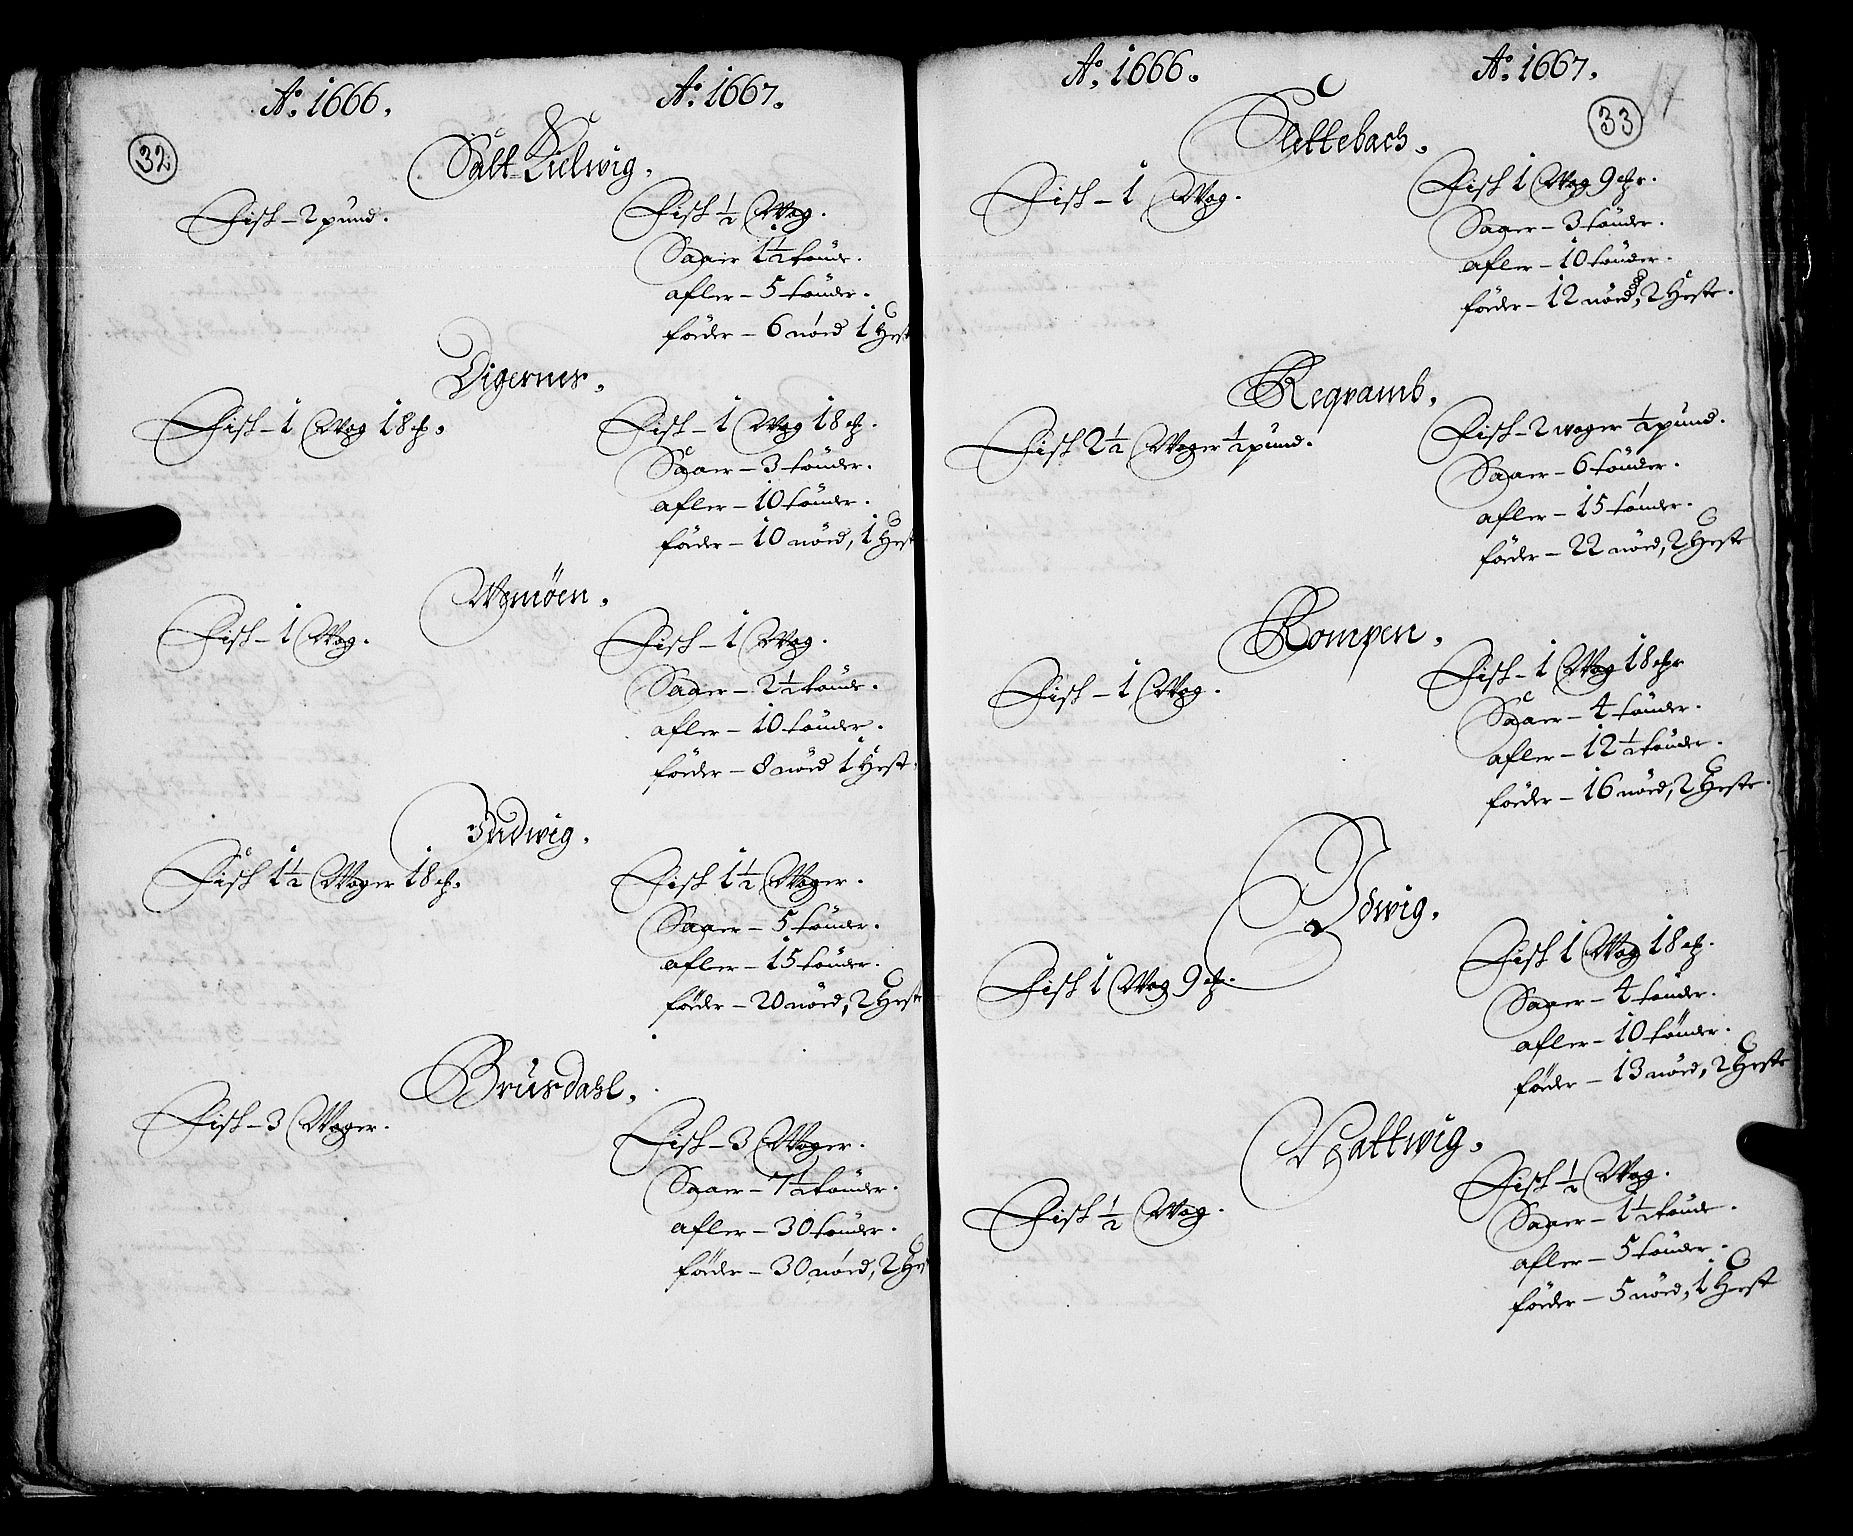 Aº. 1666.
Aº. 1667.
32.
Salt Kielwig.
Fisk – 2 pund.
Fisk ½ Wog.
Saaer 1½ tönde.
afler – 5 tönder.
föder – 6 nöed 1 Hest
Digernes.
Fisk – 1 Wog 18 ℔.
Fisk – 1 Wog 18 ℔.
Saaer – 3 tönder.
afler – 10 tönder.
föder – 10 nöed, 1 Hest
Wemöen.
Fisk – 1 Wog.
Fisk – 1 Wog.
Saaer – 2½ tönde.
afler – 10 tönder.
föder – 8 nöed 1 Hest.
Indwig.
Fisk 1½ Woger 18 ℔.
Fisk 1½ Woger.
Saaer – 5 tönder.
afler – 15 tönder.
föder – 20 nöed, 2 Heste
Brusdahl.
Fisk – 3 Woger.
Fisk – 3 Woger.
Saaer – 7½ tönder.
afler – 30 tönder.
föder – 30 nöed, 2 Hes
Aº. 1666.
Aº. 1667.
33
17
Slettebach.
Fisk – 1 Wog.
Fisk 1 Wog 9 ℔r.
Saaer – 3 tönder.
afler – 10 tönder.
föder – 12 nöed, 2 Heste.
Reqvamb.
Fisk 2½ Woger ½ pund.
Fisk – 2 woger ½ pund.
Saaer – 6 tönder.
afler – 15 tönder.
föder – 22 nöed, 2 Heste
Rompen.
Fisk – 1 Wog.
Fisk – 1 Wog 18 ℔r
Saaer – 4 tönder.
afler – 12½ tönder.
föder – 16 nöed, 2 Heste.
Ydwig.
Fisk 1 Wog 9 ℔.
Fisk 1 Wog 18 ℔.
Saaer – 4 tönder.
afler – 10 tönder.
föder – 13 nöed, 2 Heste
Hattwig.
Fisk ½ Wog.
Fisk ½ Wog.
Saaer – 1½ tönde.
afler – 5 tönder.
föder – 5 nöed, 1 Hest